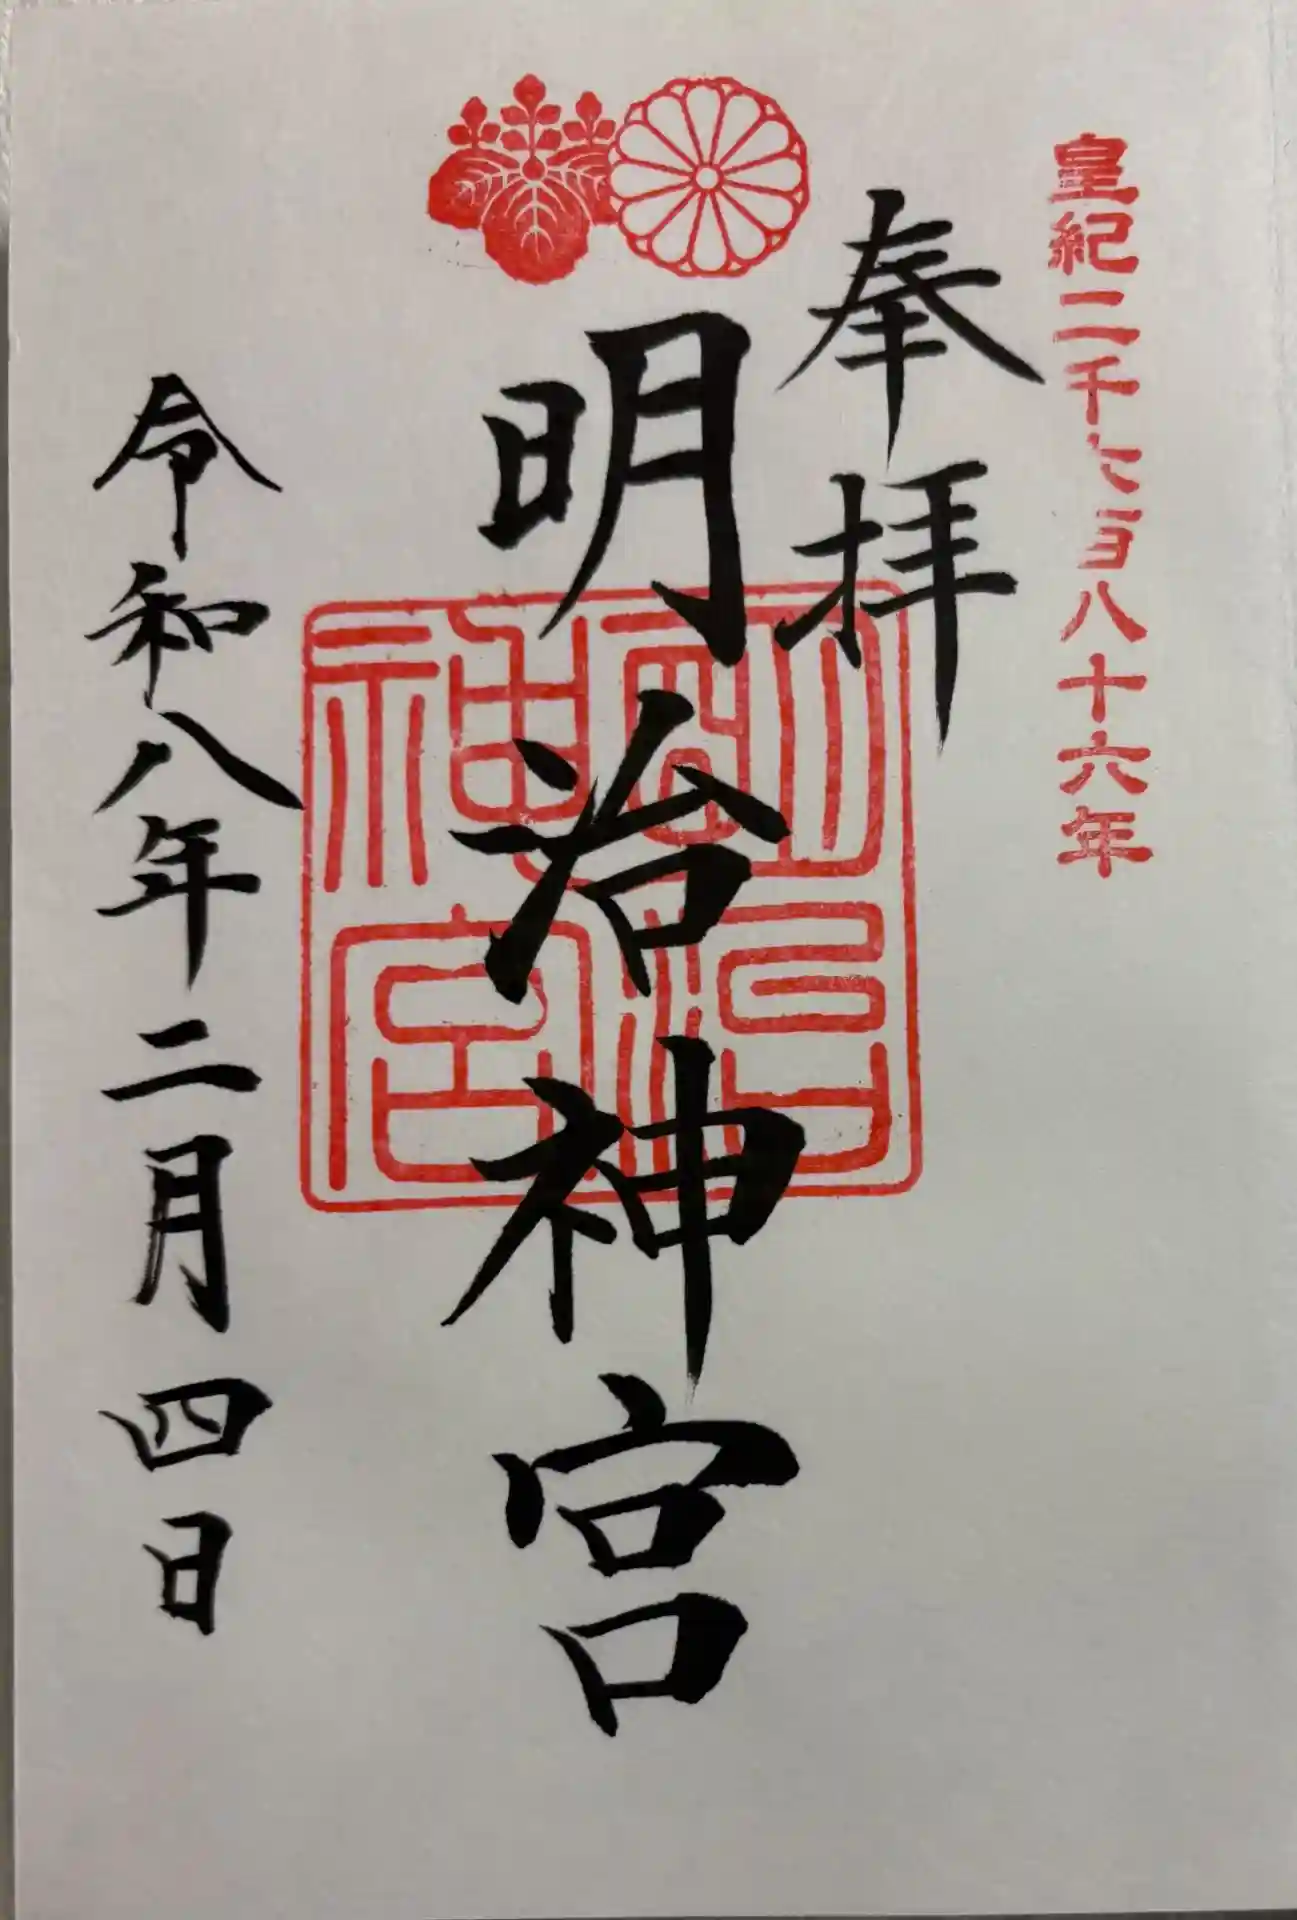 皇紀二千六百八十六年
奉拝
明治神宮
明治
神宮
令和八年二月四日